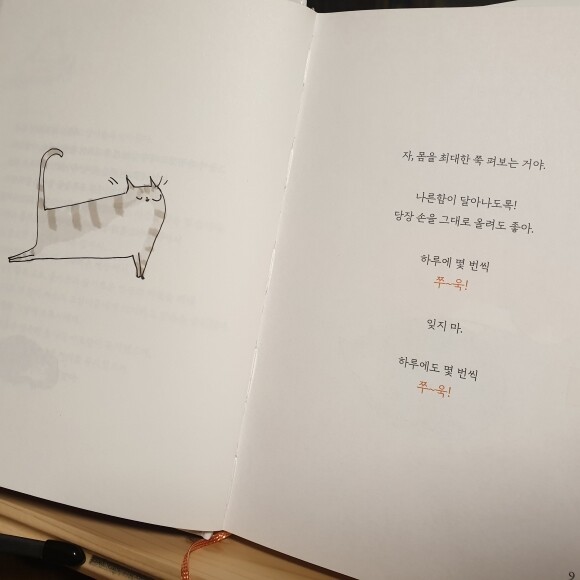 자, 몸을 최대한 쭉 펴보는 거야.
나른함이 달아나도록!
당장 손을 그대로 올려도 좋아.
하루에 몇 번씩
쭈~욱!
잊지 마.
하루에도 몇 번씩
쭈~욱!
9